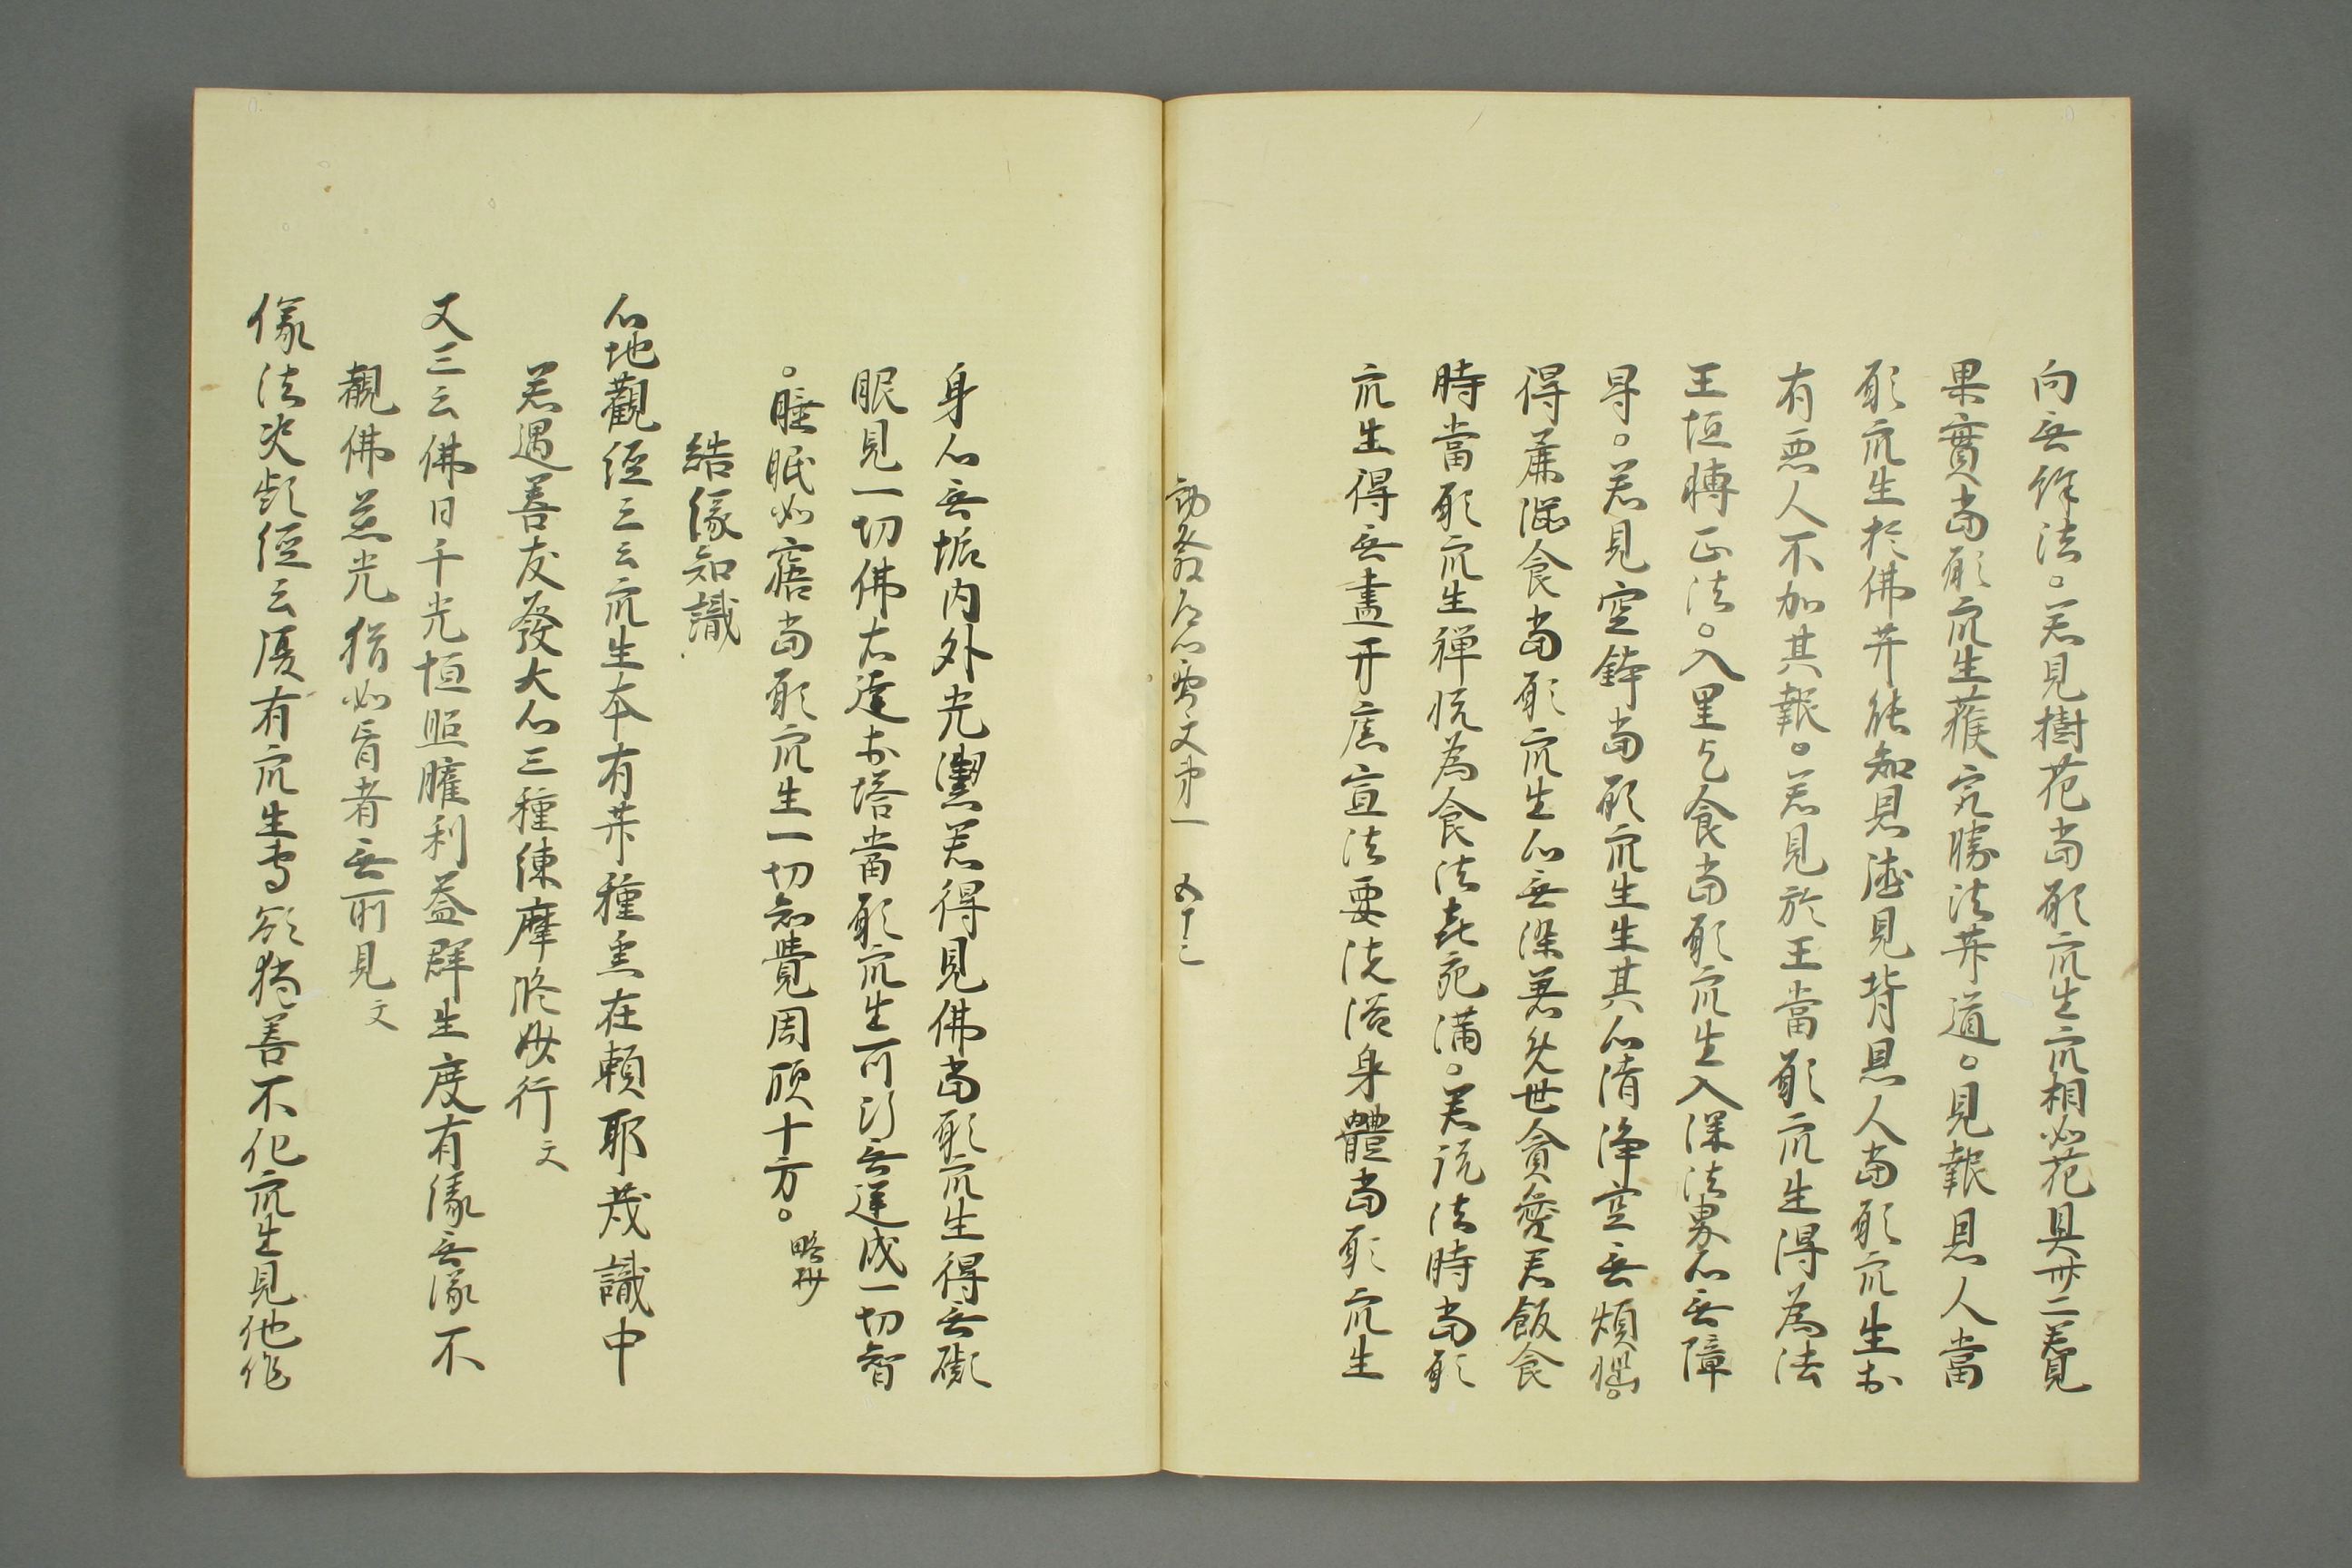 向无餘法。若見樹花當願众生众相如花具卅二若見
果實當願众生獲㝡勝法菩道。見報恩人當
願众生於佛菩能知恩德見背恩人當願众生於
有惡人不加其報。若見於王當願众生得為法
王恒轉正法。入里乞食當願众生入深法界心无障
导。若見空鉢當願众生生其心清淨空无煩惱。
得麁澁食當願众生心无染著免世貪愛若飯食
時當願众生禪悅為食法㐂充滿。若說法時當願
众生得无盡弁広宣法要洗浴身體當願众生
勸發 心 文第一 五十三
身心无垢内外光潔若得見佛當願众生得无礙
眼見一切佛右遶於塔當願众生所行无逆成一切智
。睡眠如寤當願众生一切知覺周顧十方。略抄
結縁知識
心地觀經三云众生本有菩種悉在頼耶蔵識中
若遇善友發大心三種練摩脩妙行文
又三云佛日千光恒照曜利益群生度有縁无縁不
觀佛慈光猶如盲者无所見文
像法决疑經云復有众生 欲独善不化众生見他作